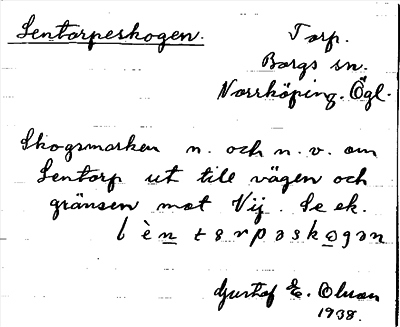 Lentorpeskogen.
Torp.
Borgs sn.
Norrköping. Ögl.
Skogsmarken n. och n.v. om
Lentorp ut till vägen och
gränsen mot Vij. Se ek.
lèntɐrpəskogən
Gustaf E. Olson
1938.